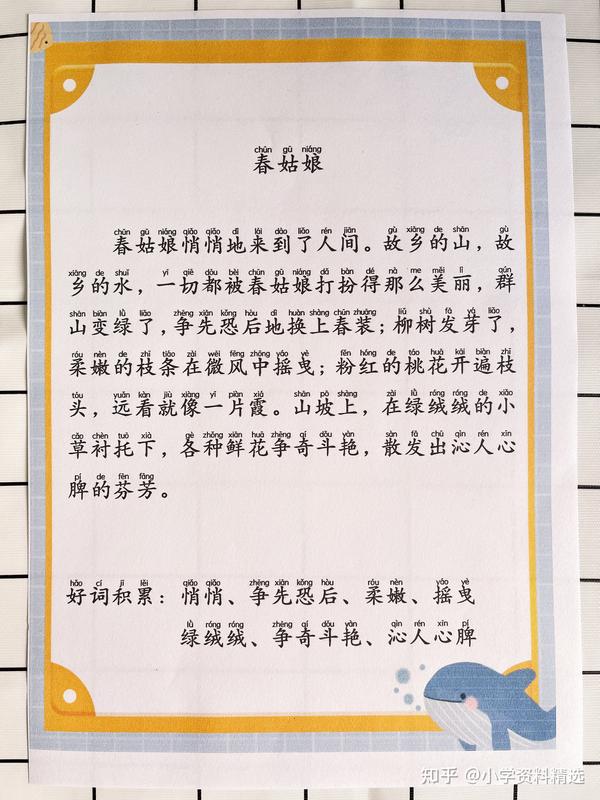 chūn gū niáng
春姑娘
chūn gū niáng qiāo qiāo dì lái dào liǎo rén jiān gù xiāng de shān gù
春姑娘悄悄地来到了人间。故乡的山，故
xiāng de shuǐ yī qiē dōu bèi chūn gū niáng dǎ bàn dé nà me měi lì qún
乡的水，一切都被春姑娘打扮得那么美丽，群
shān biàn lǜ liǎo zhēng xiān kǒng hòu dì huàn shàng chūn zhuāng liǔ shù fā yá liǎo
山变绿了，争先恐后地换上春装；柳树发芽了，
róu nèn de zhī tiáo zài wēi fēng zhōng yáo yè fěn hóng de táo huā kāi biàn zhī
柔嫩的枝条在微风中摇曳；粉红的桃花开遍枝
tóu yuǎn kàn jiù xiàng yī piàn xiá shān pō shàng zài lǜ róng róng de xiǎo
头，远看就像一片霞。山坡上，在绿绒绒的小
cǎo chèn tuō xià gè zhǒng xiān huā zhēng qí dòu yàn sàn fā chū qìn rén xīn
草衬托下，各种鲜花争奇斗艳，散发出沁人心
pí de fēn fāng
脾的芬芳。
hǎo cí jī lěi qiāo qiāo zhēng xiān kǒng hòu róu nèn yáo yè
好词积累：悄悄、争先恐后、柔嫩、摇曳
lǜ róng róng zhēng qí dòu yàn qìn rén xīn pí
绿绒绒、争奇斗艳、沁人心脾
知乎 @小学资料精选